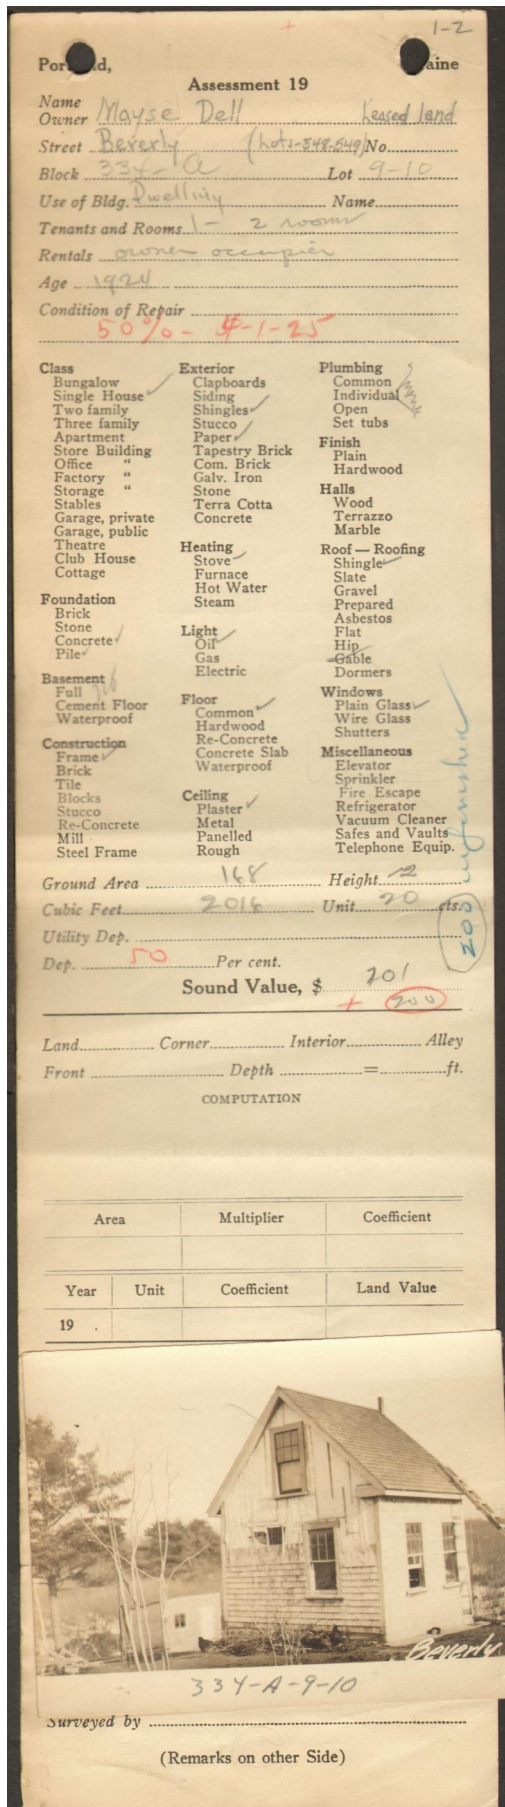 1-2
Portland, Maine
Assessment 19
Name
Owner Mayse Dell Leased land
Street Beverly (Lots-548-549) No.
Block 334-A Lot 9-10
Use of Bldg. Dwelling Name
Tenants and Rooms 1- 2 rooms
Rentals owner occupier
Age 1924
Condition of Repair
50%- 4-1-25
Class
Bungalow
Single House ✓
Two family
Three family
Apartment
Store Building
Office "
Factory "
Storage "
Stables
Garage, private
Garage, public
Theatre
Club House
Cottage
Foundation
Brick
Stone
Concrete ✓
Pile ✓
Basement
Full
Cement Floor
Waterproof
Construction
Frame ✓
Brick
Tile
Blocks
Stucco
Re-Concrete
Mill
Steel Frame
Exterior
Clapboards
Siding
Shingles ✓
Stucco
Paper ✓
Tapestry Brick
Com. Brick
Galv. Iron
Stone
Terra Cotta
Concrete
Heating
Stove ✓
Furnace
Hot Water
Steam
Light
Oil ✓
Gas
Electric
Floor
Common ✓
Hardwood
Re-Concrete
Concrete Slab
Waterproof
Ceiling
Plaster ✓
Metal
Panelled
Rough
Plumbing
Common
Individual
Open
Set tubs
Finish
Plain
Hardwood
Halls
Wood
Terrazzo
Marble
Roof — Roofing
Shingle ✓
Slate
Gravel
Prepared
Asbestos
Flat
Hip
Gable
Dormers
Windows
Plain Glass ✓
Wire Glass
Shutters
Miscellaneous
Elevator
Sprinkler
Fire Escape
Refrigerator
Vacuum Cleaner
Safes and Vaults
Telephone Equip.
200 unfinished
Ground Area 168 Height 12
Cubic Feet 2016 Unit 20 cts.
Utility Dep.
Dep. 50 Per cent.
Sound Value, $ 201
+ 200
Land Corner Interior Alley
Front Depth = ft.
COMPUTATION
Area Multiplier Coefficient
Year Unit Coefficient Land Value
19 .
Beverly
334-A-9-10
Surveyed by
(Remarks on other Side)